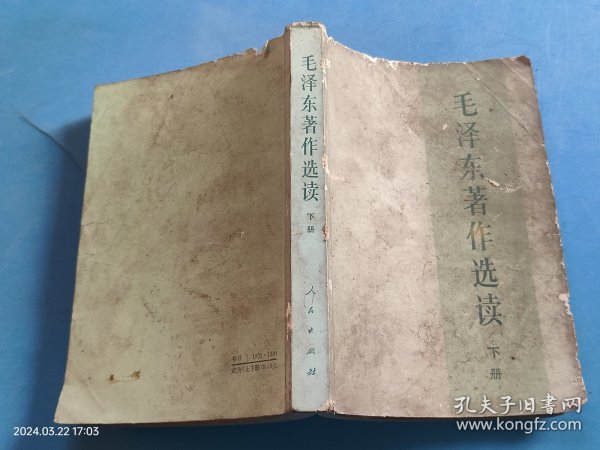 毛泽东著作选读
下册
人民出版社
毛泽东著作选读
下册
书号
定价(上下册)
2024.03.22 17:03
孔夫子旧书网
www.kongfz.com